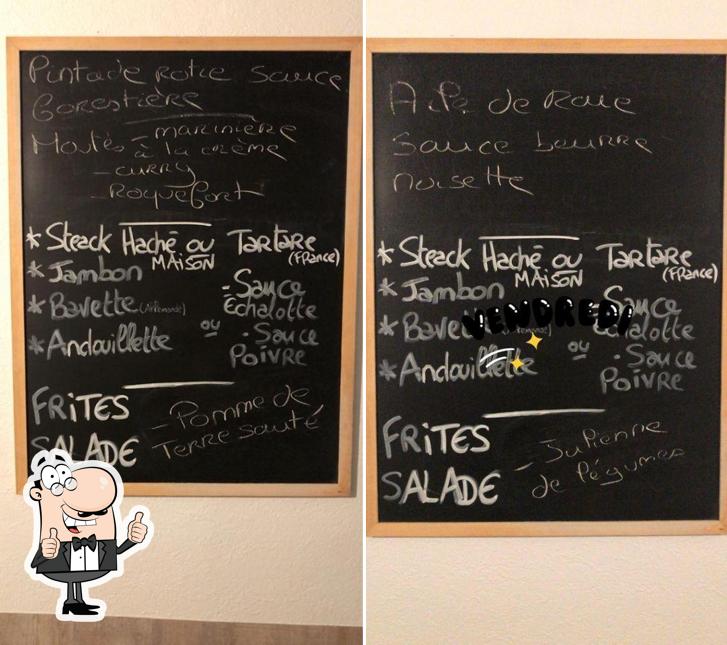 Pintade rotie sauce
Forestière
Moules - marinière
à la crème
- curry
- Roquefort
* Steack Haché ou Tartare
MAISON (France)
* Jambon
* Bavette (Allemande) - Sauce
Echalotte
* Andouillette ou - Sauce
Poivre
FRiTES - Pomme de
SALADE Terre sauté
Aile de Raie
Sauce beurre
noisette
* Steack Haché ou Tartare
MAISON (France)
* Jambon
- Sauce
VENDREDI
* Echalotte
* Andouillette ou - Sauce
Poivre
FRiTES - Julienne
SALADE de légumes